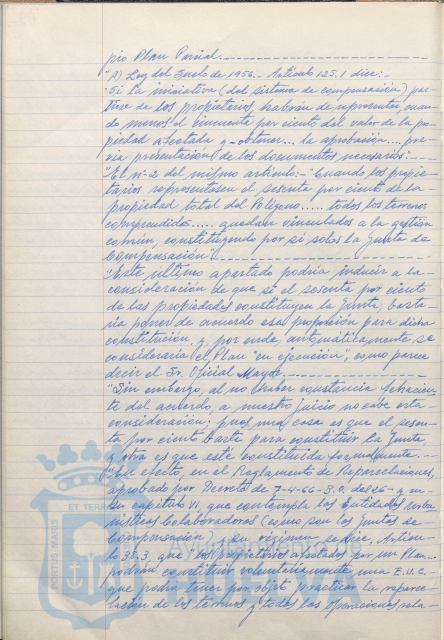 pio Plan Parcial.
"A) Ley del Suelo de 1956.- Artículo 125.1 dice:-
"Si la iniciativa (del sistema de compensación) par-
tiese de los propietarios, habrán de representar, cuan-
do menos al cincuenta por ciento del valor de la pro-
piedad afectada y obtener... la aprobación... pre-
via presentación de los documentos necesarios.-
"El nº 2 del mismo artículo:- "Cuando los propie-
tarios representasen el sesenta por ciento de la
propiedad total del Polígono..... todos los terrenos
comprendidos..... quedarán vinculados a la gestión
común, constituyendo por sí solos la Junta de
Compensación".
"Este último apartado podría inducir a la
consideración de que si el sesenta por ciento
de las propiedades constituyen la Junta, basta-
ría poner de acuerdo esa proporción para dicha
constitución, y por ende, automáticamente se
consideraría el Plan "en ejecución", como parece
decir el Sr. Oficial Mayor.
"Sin embargo, al no haber constancia
te del acuerdo, a nuestro juicio no cabe esta
consideración; pues una cosa es que el sesen-
ta por ciento baste para constituir la Junta,
y otra es que esté constituida formalmente.-
"En efecto, en el Reglamento de Reparcelaciones,
aprobado por Decreto de 7-4-66 B.O. del 26- y en
su capítulo VI, que contempla las Entidades Urba-
nísticas Colaboradoras (como son las Juntas de
Compensación) y su régimen, se dice, Artícu-
lo 35.3, que "los propietarios afectados por un Plan...
podrán constituir voluntariamente una E.U.C.
que podrá tener por objeto practicar la reparce-
lación de los terrenos y todas las operaciones rela-
PORTUS MARIS
ET TERRAE